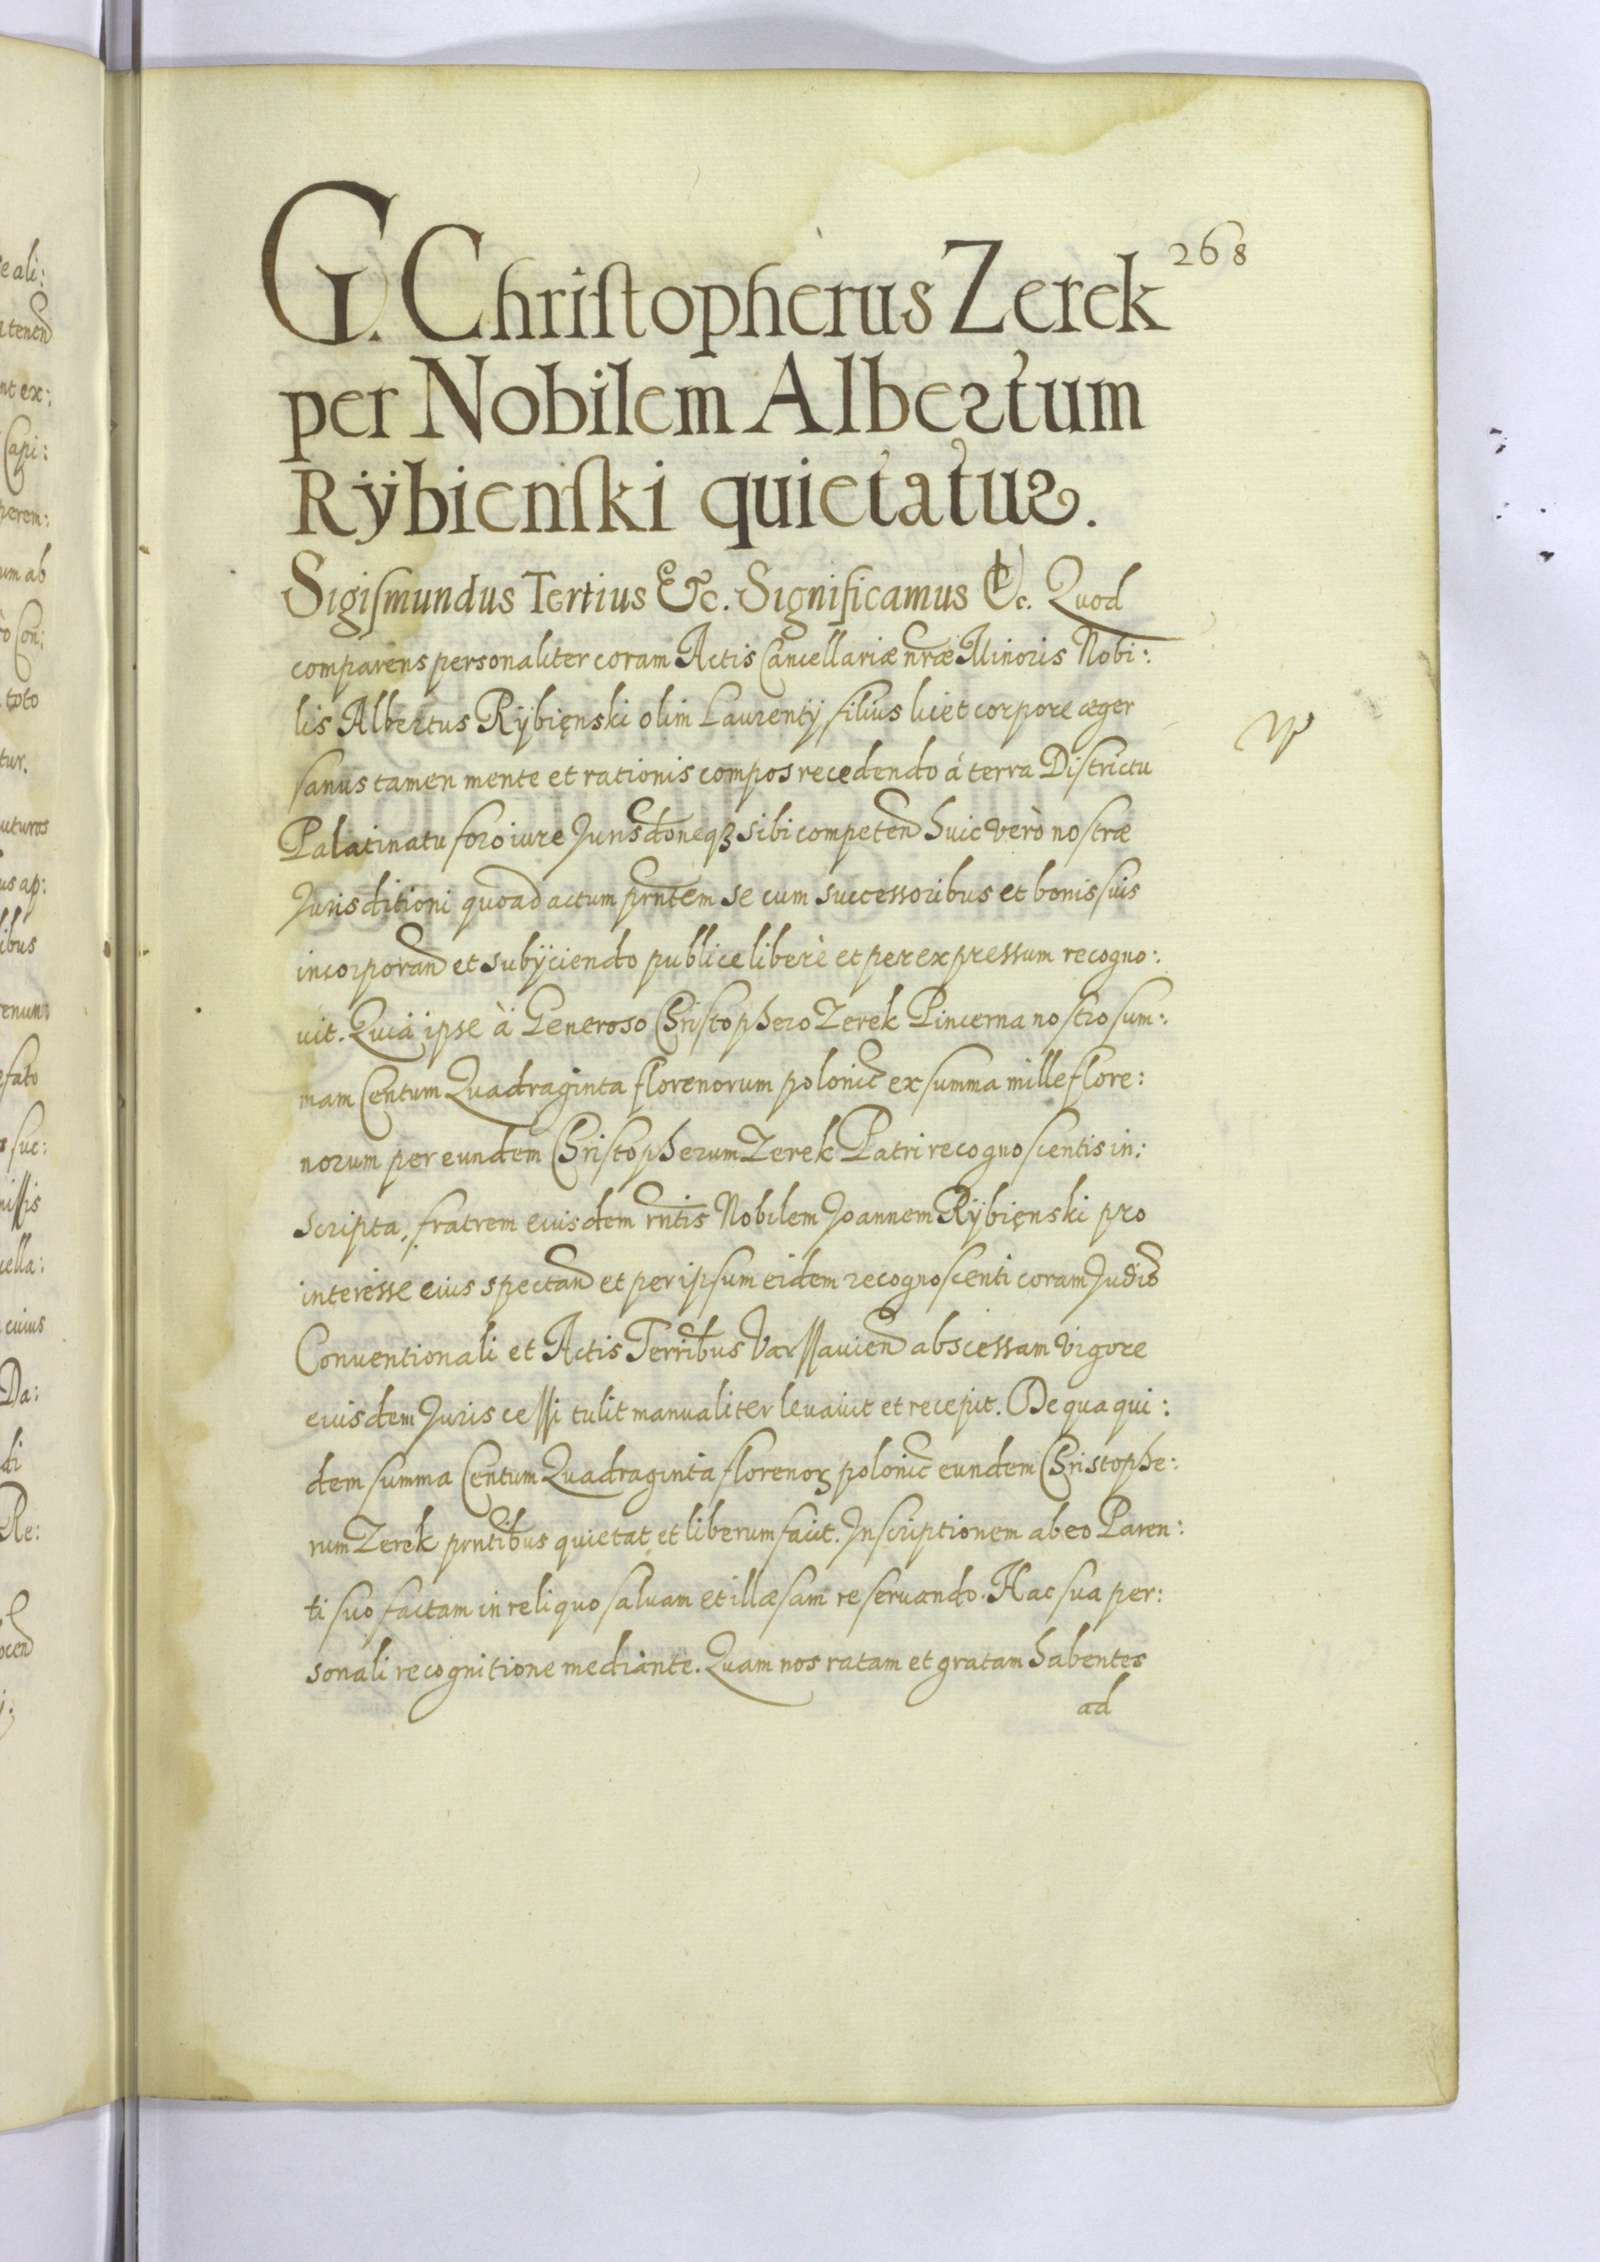 268
G. Christopherus Zerek
per Nobilem Albertum
Rÿbienski quietatus.
Sigismundus Tertius &c. Significamus &c. Quod
comparens personaliter coram Actis Cancellariæ nræ Minoris Nobi:
lis Albertus Rÿbięnski olim Laurentÿ filius licet corpore æger
sanus tamen mente et rationis compos recedendo à terra Districtu
Palatinatu foro iure Jurisdoneqȝ sibi competen huic verò nostræ
Jurisditioni quoad actum prntem se cum successoribus et bonis suis
incorporan et subÿciendo publice liberè et per expressum recogno:
vit. Quià ipse à Generoso Christophero Zerek Pincerna nostro sum:
mam Centum Quadraginta florenorum polonic ex summa mille flore:
norum per eundem Christopherum Zerek Patri recognoscentis in:
scripta, fratrem eiusdem rntis Nobilem Joannem Rÿbięnski pro
interesse eius spectan et per ipsum eidem recognoscenti coram Judio
Conventionali et Actis Terribus Varssavien abscessam vigore
eiusdem Juris cessi tulit manualiter levavit et recepit. De qua qui:
dem summa Centum Quadraginta florenoꝝ polonic eundem Christophe:
rum Zerek prntibus quietat et liberum facit. Inscriptionem ab eo Paren:
ti suo factam in reliquo salvam et illæsam reservando. Hac sua per:
sonali recognitione mediante. Quam nos ratam et gratam habentes
ad
e ali:
tenen
nt ex:
Capi:
perem:
um ab
Con:
toto
tur.
uturos
us ap:
ibus
efato
suc:
missis
cella:
cuius
Da:
di
Re:
ocen